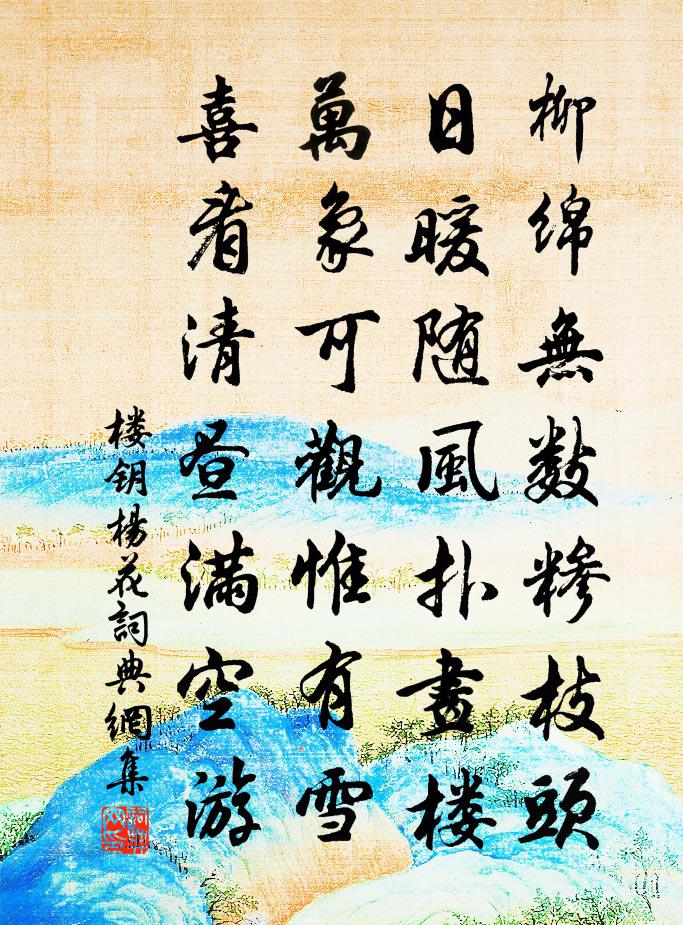 柳绵無数糁枝頭
日暖随風扑畫楼
萬象可觀惟有雪
喜看清昼满空游
楼钥杨花詞典網集